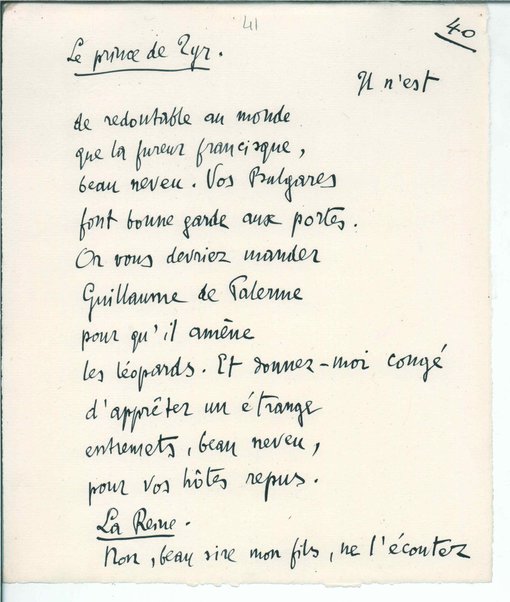 41
40
Le prince de Tyr.
Il n'est
de redoutable au monde
que la fureur francisque,
beau neveu. Vos Bulgares
font bonne garde aux portes.
Or vous devriez mander
Guillaume de Palerme
pour qu'il amène
les léopards. Et donnez-moi congé
d'apprêter un étrange
entremets, beau neveu,
pour vos hôtes repus.
La Reine.
Non, beau sire mon fils, ne l'écoutez